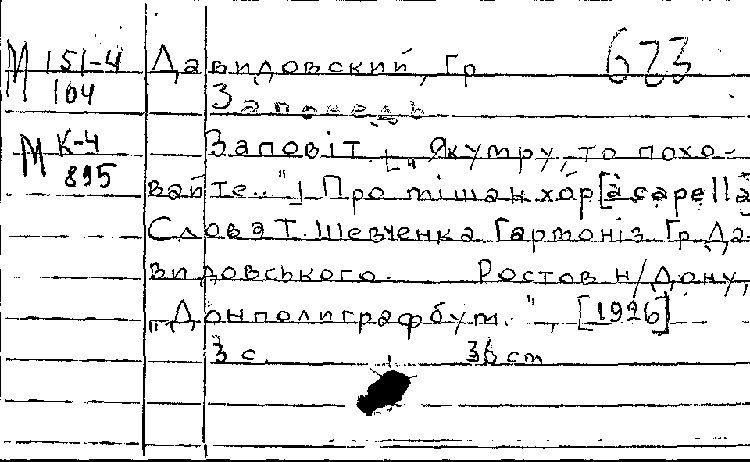 М 151-4 Давидовский, Гр 623
104 Заповедь
М К-4 Заповіт. [„Якумру, то похо-
895 вайте.."] Про мішан хор [a capella
Слова Т. Шевченка Гармоніз. Гр. Да-
видовського. Ростов н/Дону,
„Донполиграфбум.", [1926]
3 с. 36 cm